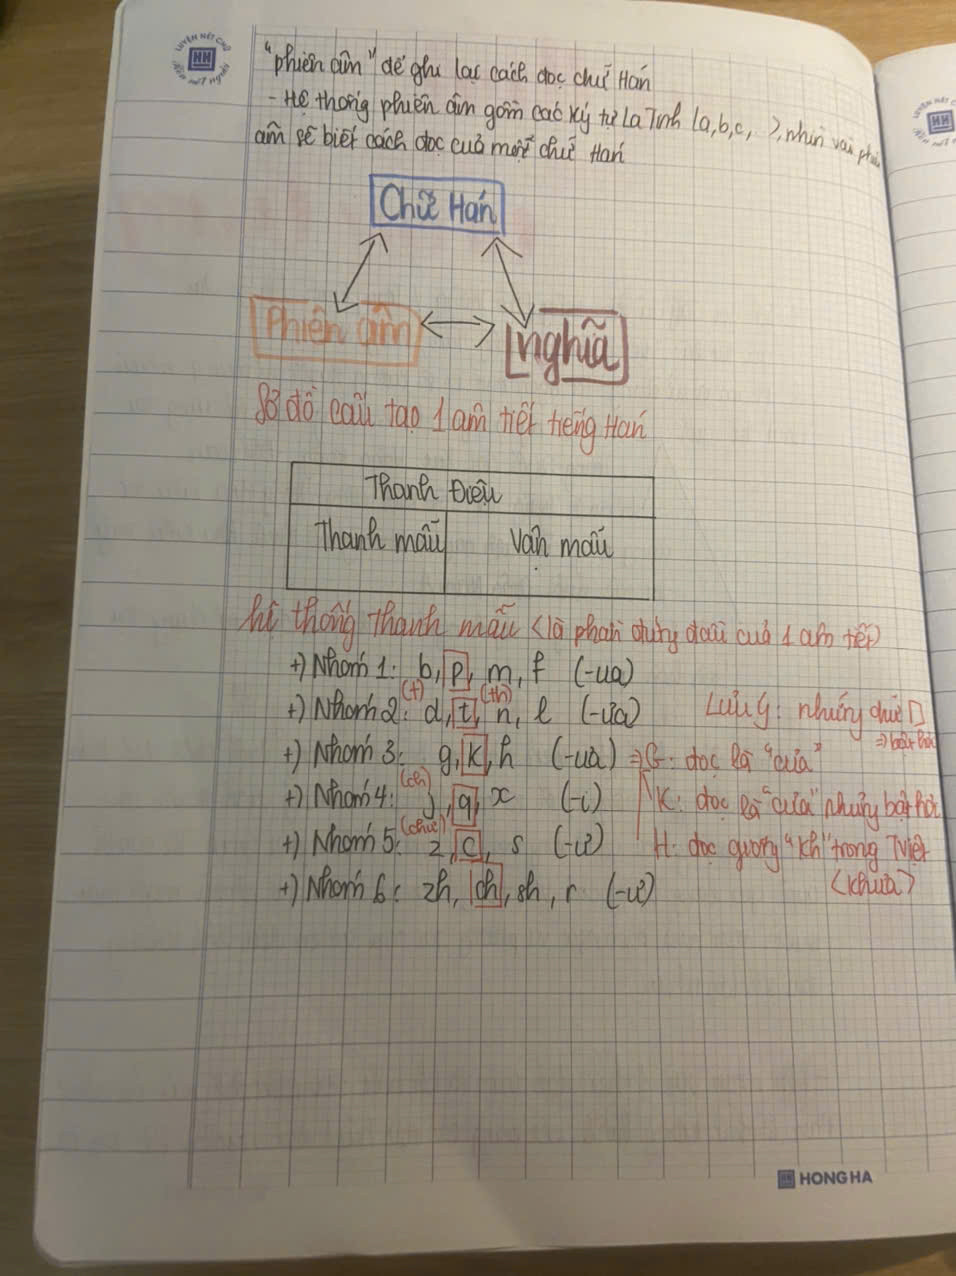 LUYỆN NÉT CHỮ
HH
Nền nết người
"phiên âm" để ghi lại cách đọc chữ Hán
- Hệ thống phiên âm gồm các ký tự La Tinh (a,b,c, ), nhìn vài phiên
âm sẽ biết cách đọc của một chữ Hán
Chữ Hán
Phiên âm
nghĩa
Sơ đồ cấu tạo 1 âm tiết tiếng Hán
Thanh Điệu
Thanh mẫu
Vận mẫu
hệ thống thanh mẫu (là phần đứng đầu của 1 âm tiết)
+) Nhóm 1: b, p, m, f (-ua)
(t) (th)
+) Nhóm 2: d, t, n, l (-ưa)
Lưu ý: những chữ □
⇒ bật hơi
+) Nhóm 3: g, k, h (-ua) ⇒ G: đọc là "cưa"
(ch)
+) Nhóm 4: j, q, x (-i)
K: đọc là "cưa" nhưng bật hơi
(chư)
+) Nhóm 5: z, c, s (-ư)
H: đọc giống "kh" trong TViệt
(khưa)
+) Nhóm 6: zh, ch, sh, r (-ư)
HONG HA